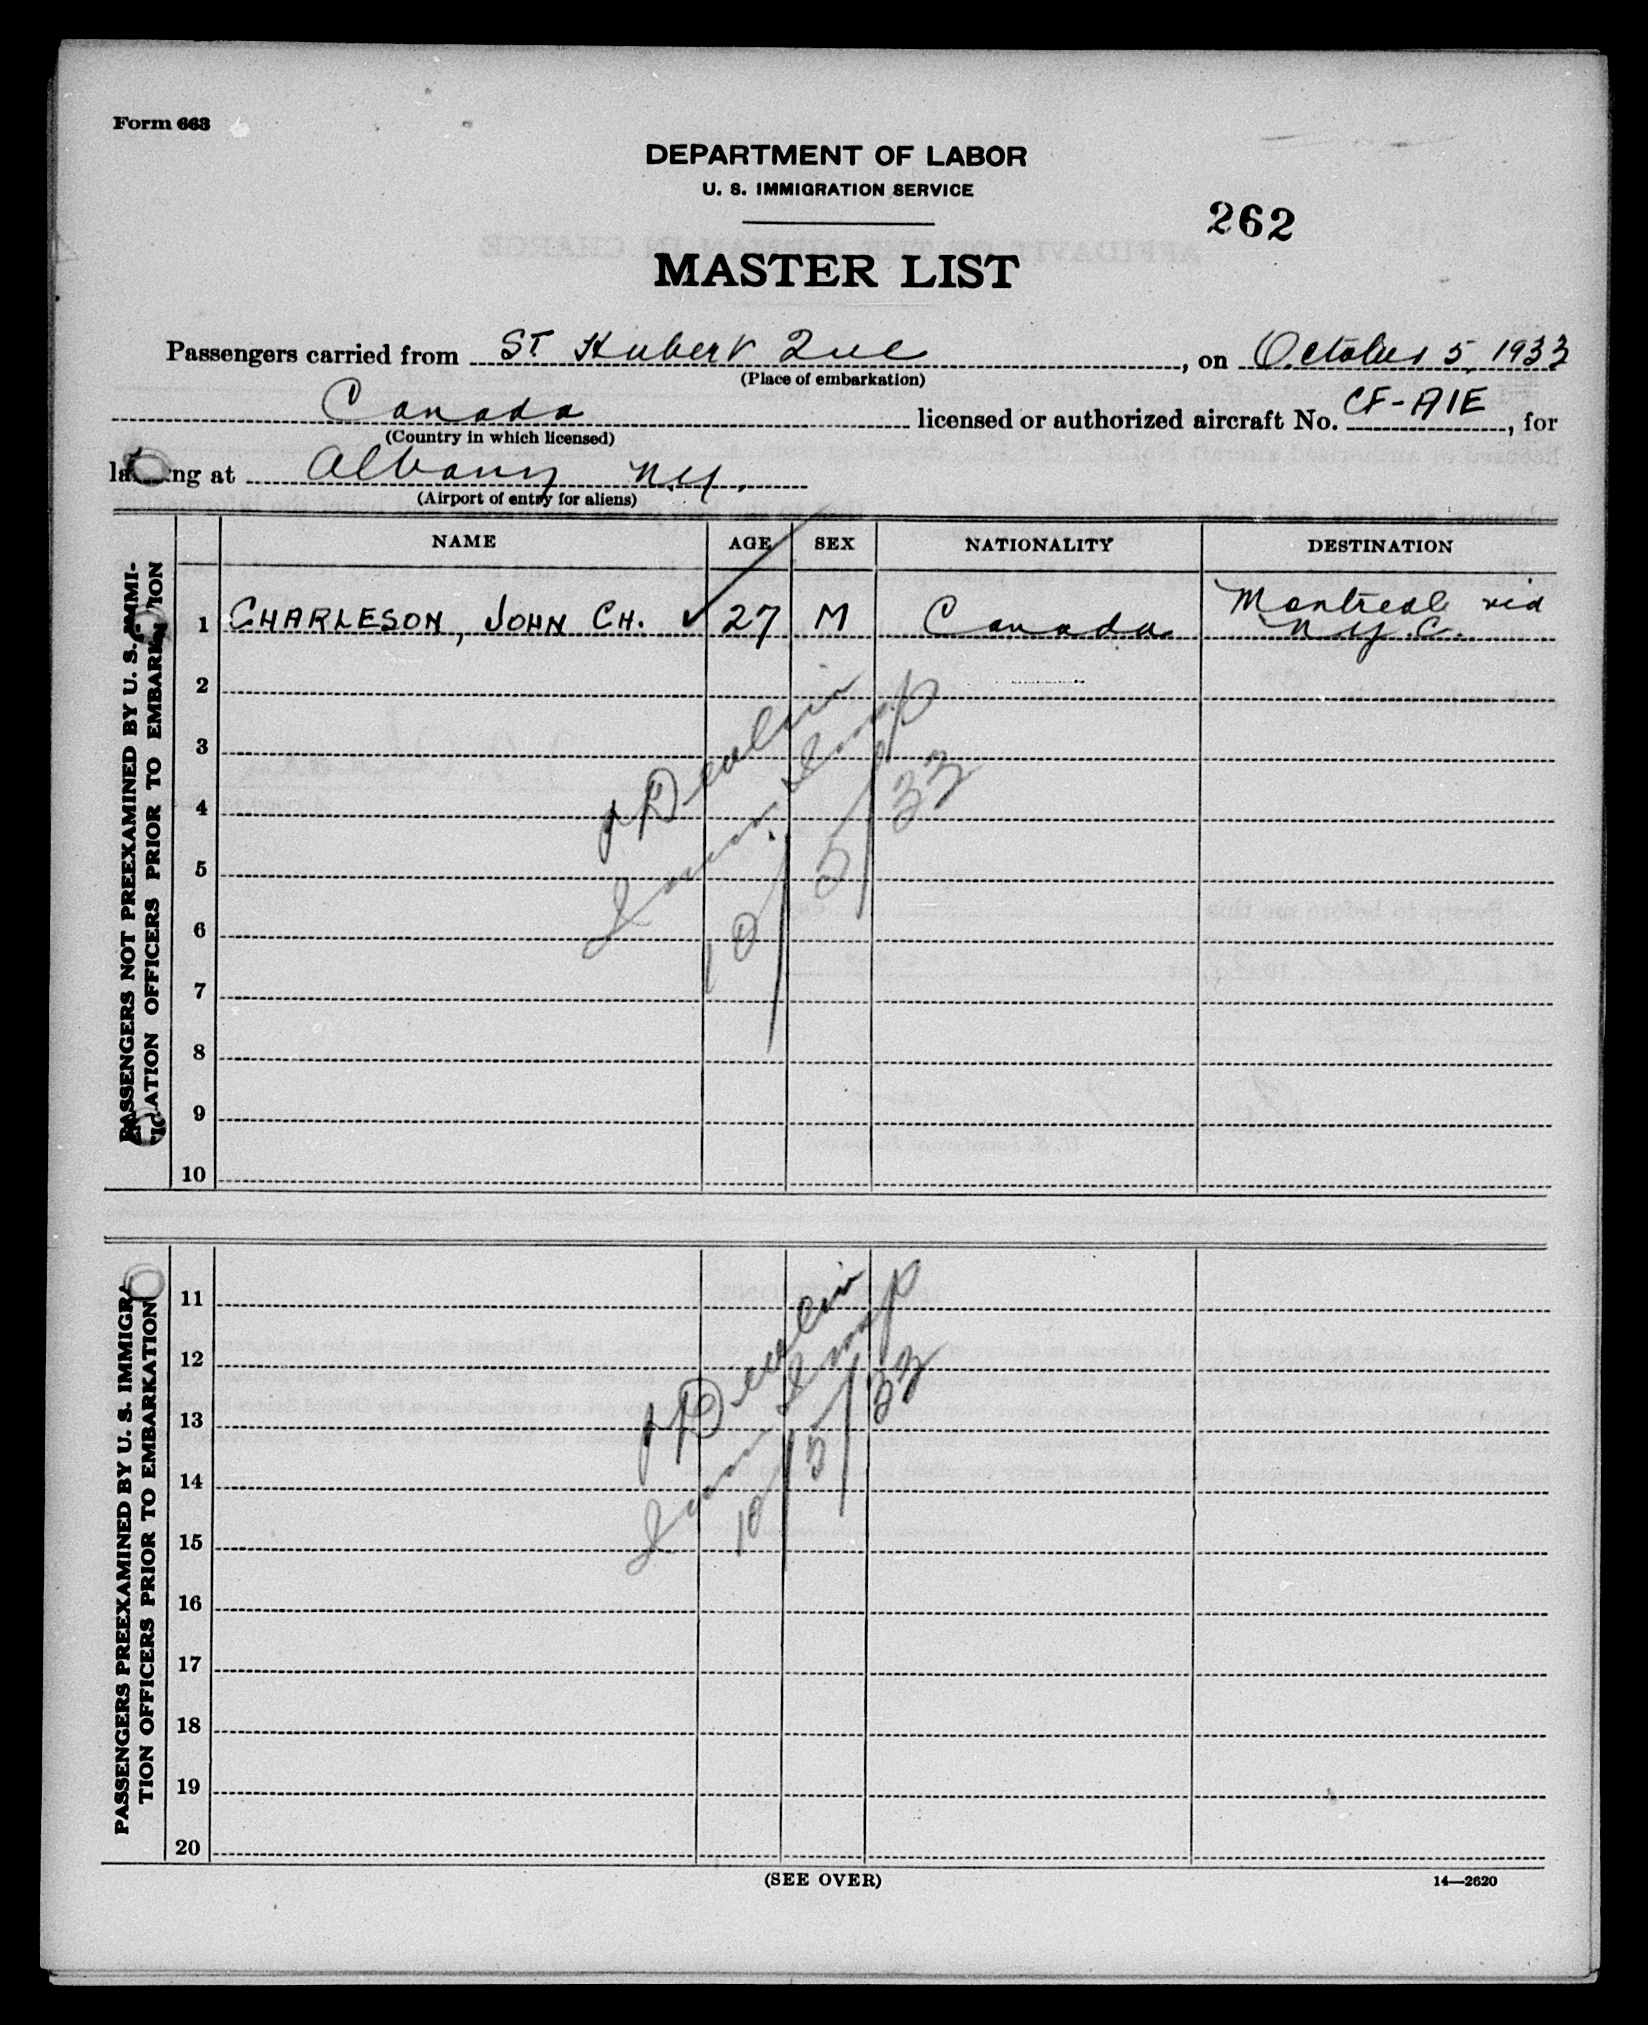 Form 663
DEPARTMENT OF LABOR
U. S. IMMIGRATION SERVICE
262
MASTER LIST
Passengers carried from St Hubert Que, on October 5, 1933
(Place of embarkation)
Canada licensed or authorized aircraft No. CF-AIE, for
(Country in which licensed)
landing at Albany N.Y.
(Airport of entry for aliens)
NAME AGE SEX NATIONALITY DESTINATION
PASSENGERS NOT PREEXAMINED BY U. S. IMMI-
GRATION OFFICERS PRIOR TO EMBARKATION
1 CHARLESON, JOHN CH. ✓ 27 M Canada Montreal via
N.Y.C.
2
3
4
5
6
7
8
9
10
Devlin
Imm Insp
10/5/33
PASSENGERS PREEXAMINED BY U. S. IMMIGRA-
TION OFFICERS PRIOR TO EMBARKATION
11
12
13
14
15
16
17
18
19
20
Devlin
Imm Insp
10/5/33
(SEE OVER)
14—2620